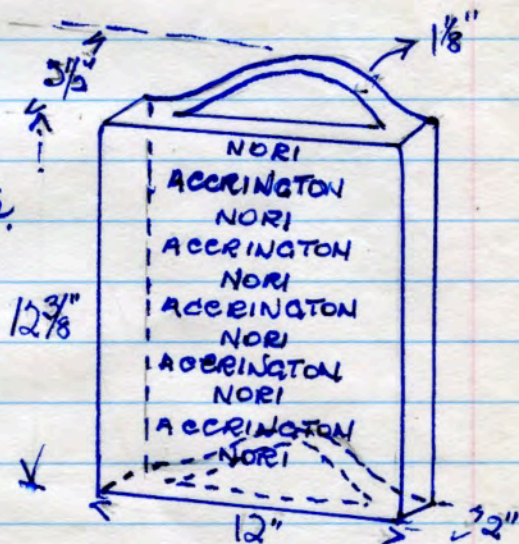 1 1/8"
3 1/2"
NORI
ACCRINGTON
NORI
ACCRINGTON
NORI
12 3/8"
ACCRINGTON
NORI
ACCRINGTON
NORI
ACCRINGTON
NORI
12"
2"